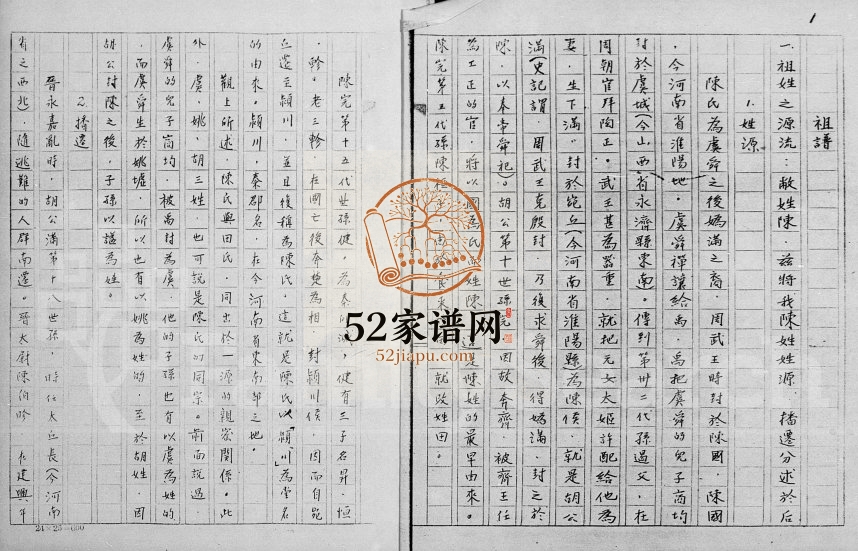 1
祖譜
一.祖姓之源流:敝姓陳.兹將我陳姓姓源.播遷分述於后
1.姓源
陳氏為虞舜之後媯滿之裔.周武王時封於陳國.陳國
.今河南省淮陽地.虞舜禪讓給禹.禹把虞舜的兒子商均
封於虞城(今山西省永濟縣東南)。傳到第卅二代孫過父.在
周朝官拜陶正。武王甚為器重.就把元女太姬許配給他為
妻.生下滿.封於宛丘(今河南省淮陽縣)為陳侯.就是胡公
滿(史記謂.周武王克殷封 乃復求舜後.得媯滿.封之於
陳.以奉帝舜祀。胡公第十世孫完.因故奔齊.被齊王任
為工正的官.將以國為氏而姓陳 這是陳姓的最早由來。
陳完第五代孫陳桓子 就改姓田。
陳完第十五代世孫健.為秦 健有三子名昇.恒
.軫。老三軫.在國亡後奔楚為相.封潁川侯.因而自宛
丘遷至潁川.並且復稱為陳氏.這就是陳氏以「潁川」為堂名
的由來。潁川.秦郡名.在今河南省東南部之地。
觀上所述.陳氏與田氏.同出於一源的親密關係。此
外.虞.姚.胡三姓.也可說是陳氏的同宗。前面說過
虞舜的兒子商均.被禹封為虞.他的子孫也有以虞為姓的
.而虞舜生於姚墟.所以也有以姚為姓的.至於胡姓.因
胡公封陳之後.子孫以諡為姓。
2.播遷
晉永嘉亂時.胡公滿第十八世孫.時任太丘長(今河南
省之西北)隨逃難的人群南遷。晉太尉陳伯眕 在建興年
24×25=600
52家谱网
52jiapu.com